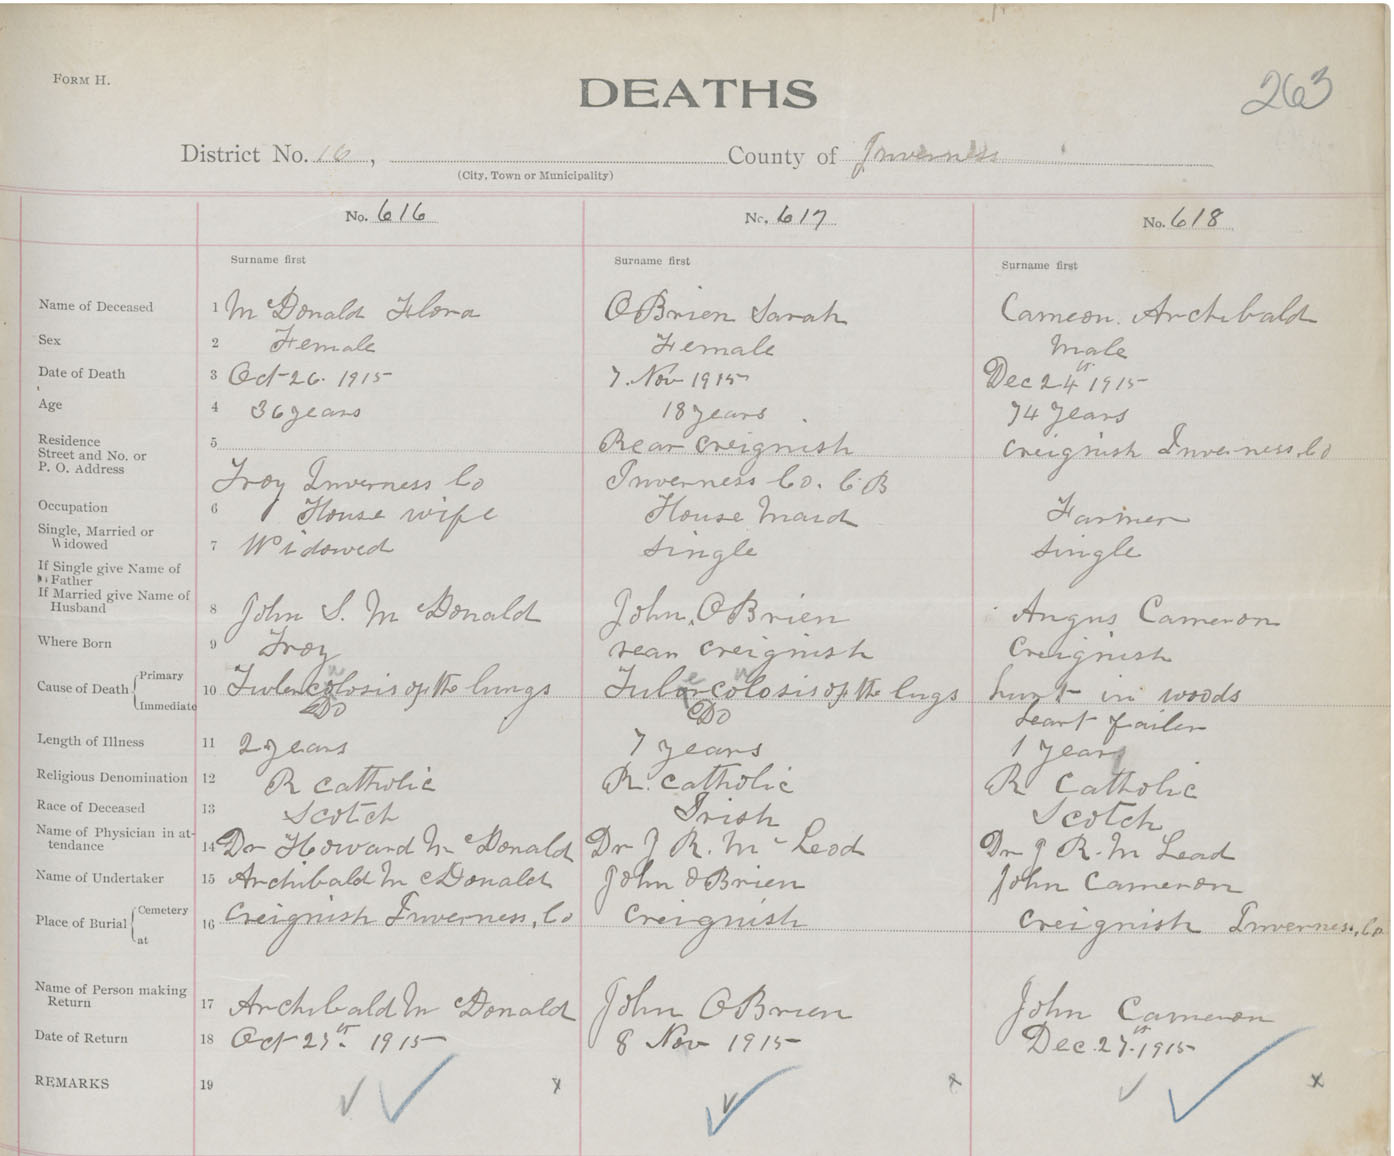 FORM H.
DEATHS
263
District No. 16, County of Inverness
(City, Town or Municipality)
No. 616 No. 617 No. 618
Surname first Surname first Surname first
Name of Deceased 1 McDonald Flora OBrien Sarah Cameon. Archibald
Sex 2 Female Female Male
Date of Death 3 Oct 26. 1915 7. Nov 1915 Dec 24th 1915
Age 4 36 years 18 years 74 years
Residence
Street and No. or
P. O. Address 5 Rear Creignish Creignish Inverness, Co
Troy Inverness Co Inverness Co. C B
Occupation 6 House wife House Maid Farmer
Single, Married or
Widowed 7 Widowed Single Single
If Single give Name of
Father
If Married give Name of
Husband 8 John S. McDonald John, OBrien Angus Cameron
Where Born 9 Troy rear Creignish Creignish
Cause of Death Primary 10 of the lungs of the lugs hurt in woods
Immediate Do Do heart failer
Length of Illness 11 2 years 7 years 1 year
Religious Denomination 12 R Catholic R. Catholic R Catholic
Race of Deceased 13 Scotch Irish Scotch
Name of Physician in at-
tendance 14 Dr Howard McDonald Dr J R. Mc Leod Dr J R. M Lead
Name of Undertaker 15 Archibald McDonald John OBrien John Cameron
Place of Burial Cemetery 16 Creignish Inverness, Co Creignish Creignish Inverness, Co
at
Name of Person making
Return 17 Archibald McDonald John OBrien John Cameron
Date of Return 18 Oct 27th. 1915 8 Nov 1915 Dec. 27th. 1915
REMARKS 19 x x x